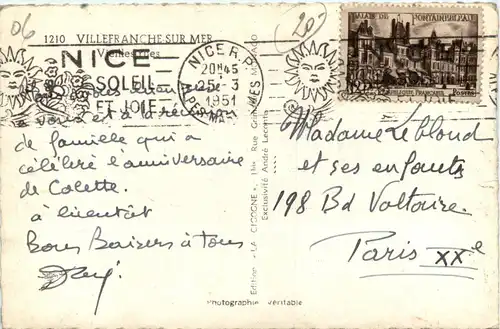 06
(20)
1210 VILLEFRANCHE-SUR-MER
Vieilles rues
NICE
SOLEIL
ET JOIE
NICE R.P.
20H45
25-3
1951
ALPES MMES
PALAIS DE FONTAINEBLEAU
POSTES
vous et à la ré
de famille qui a
célébré l'anniversaire
de Colette.
à bientôt
Bons Baisers à tous
Edition "LA CIGOGNE", Rue MONACO
Exclusivité André Laconta
Photographie Véritable
Madame Leblond
et ses enfants
198 Bd Voltaire
Paris XXe